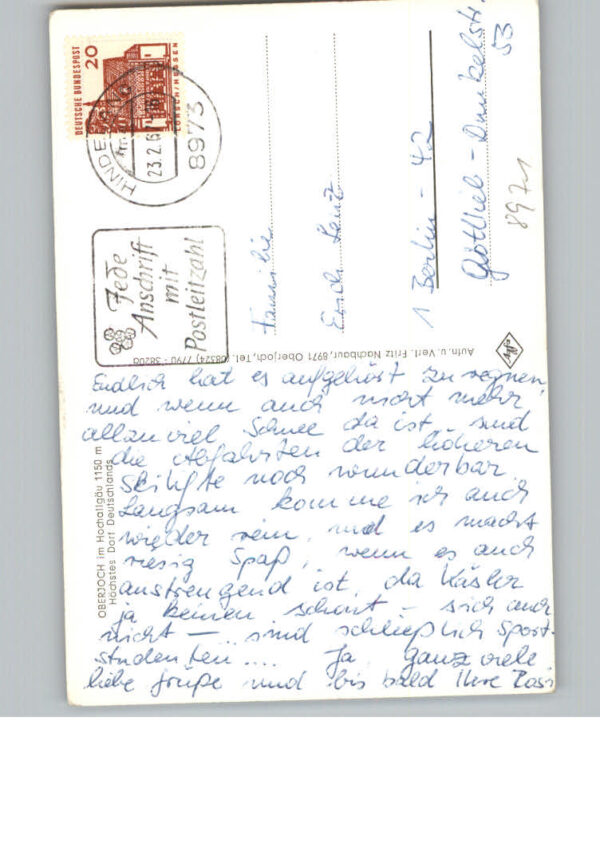 DEUTSCHE BUNDESPOST
20
LORSCH/HESSEN
23.2.67
8973
Jede
Anschrift
mit
Postleitzahl
Familie
Erich Lenz
1 Berlin - 42
Gottlieb - Dunkelstr.
53
8971
Aufn. u. Verl. Fritz Nachbaur, 8971 Oberjoch, Tel. (08324) 7790 - 3820a
Agfa
OBERJOCH im Hochallgäu 1150 m
Höchstes Dorf Deutschlands
Endlich hat es aufgehört zu regnen,
und wenn auch nicht mehr
allzu viel Schnee da ist, sind
die Abfahrten der höheren
Skilifte noch wunderbar.
Langsam komme ich auch
wieder rein, und es macht
riesig Spaß, wenn es auch
anstrengend ist, da
ja keinen schont – sich auch
nicht – sind schließlich Sport-
studenten.... Ja, ganz viele
liebe Grüße und bis bald Ihre Rosi